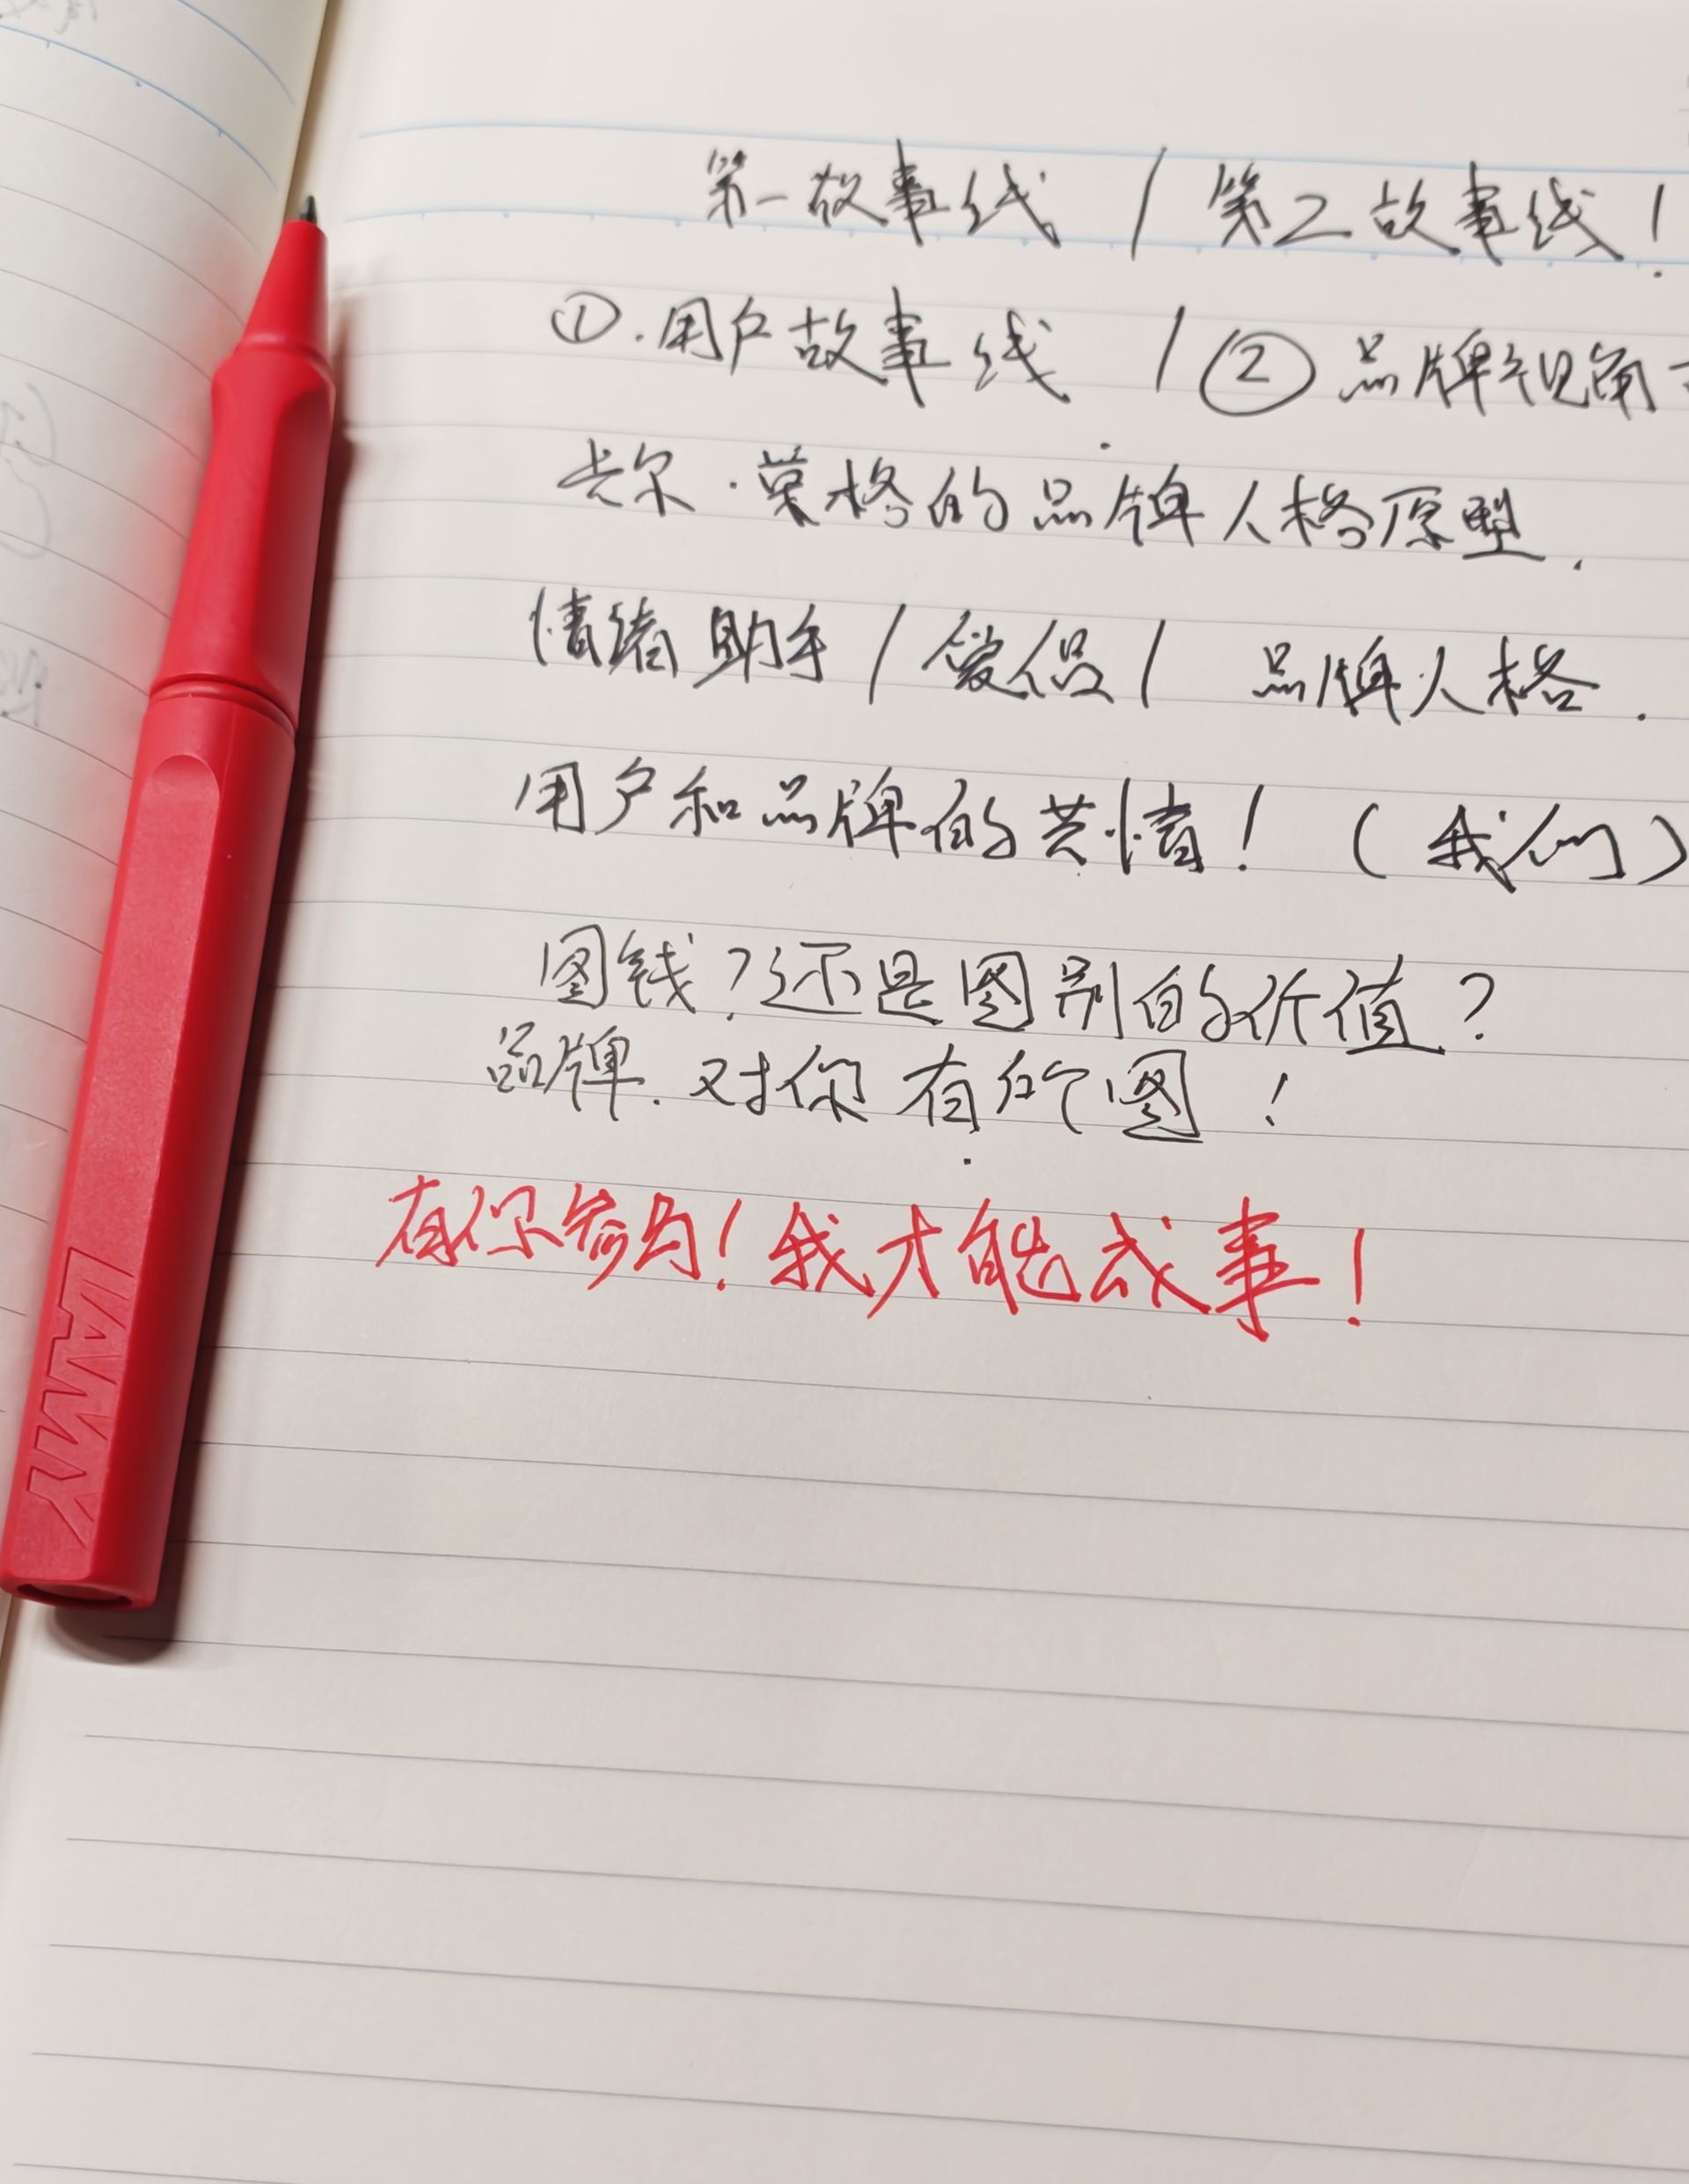 第一故事线 / 第二故事线!
①.用户故事线 / ② 品牌视角
卡尔·荣格的品牌人格原型.
情绪助手 / 爱侣 / 品牌人格.
用户和品牌的共情! (我们)
图钱?还是图别的价值?
品牌.对你有所图!
有你参与!我才能成事!
LAMY